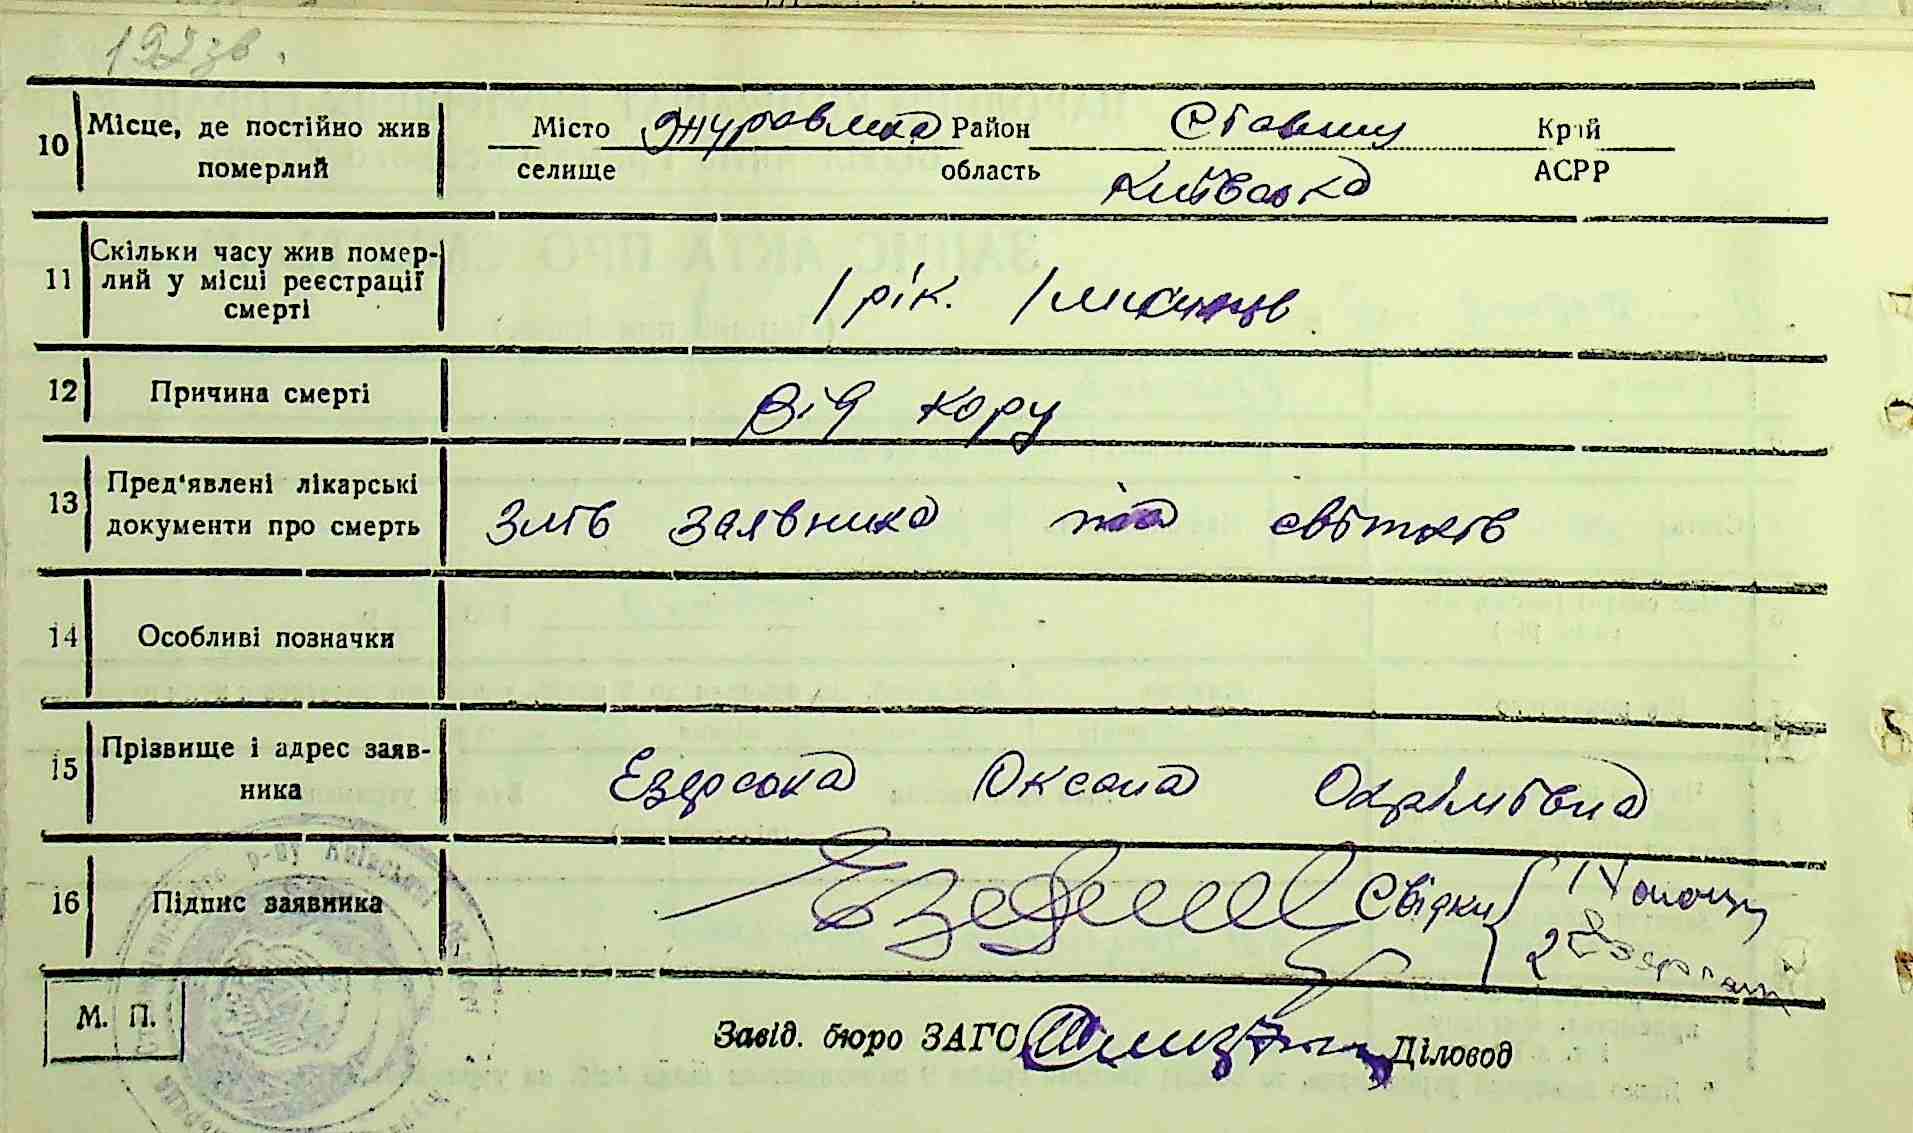 192зв.
10 Місце, де постійно жив померлий Місто Журавлиха Район Ставищ Край
селище область Київська АСРР
11 Скільки часу жив помер-
лий у місці реєстрації
смерті 1 рік. 1 місяців
12 Причина смерті Від кору
13 Пред'явлені лікарські
документи про смерть Злів заявника та свідків
14 Особливі позначки
15 Прізвище і адрес заяв-
ника Езерська Оксана
16 Підпис заявника Свідки
М. П.
Завід. бюро ЗАГС Діловод